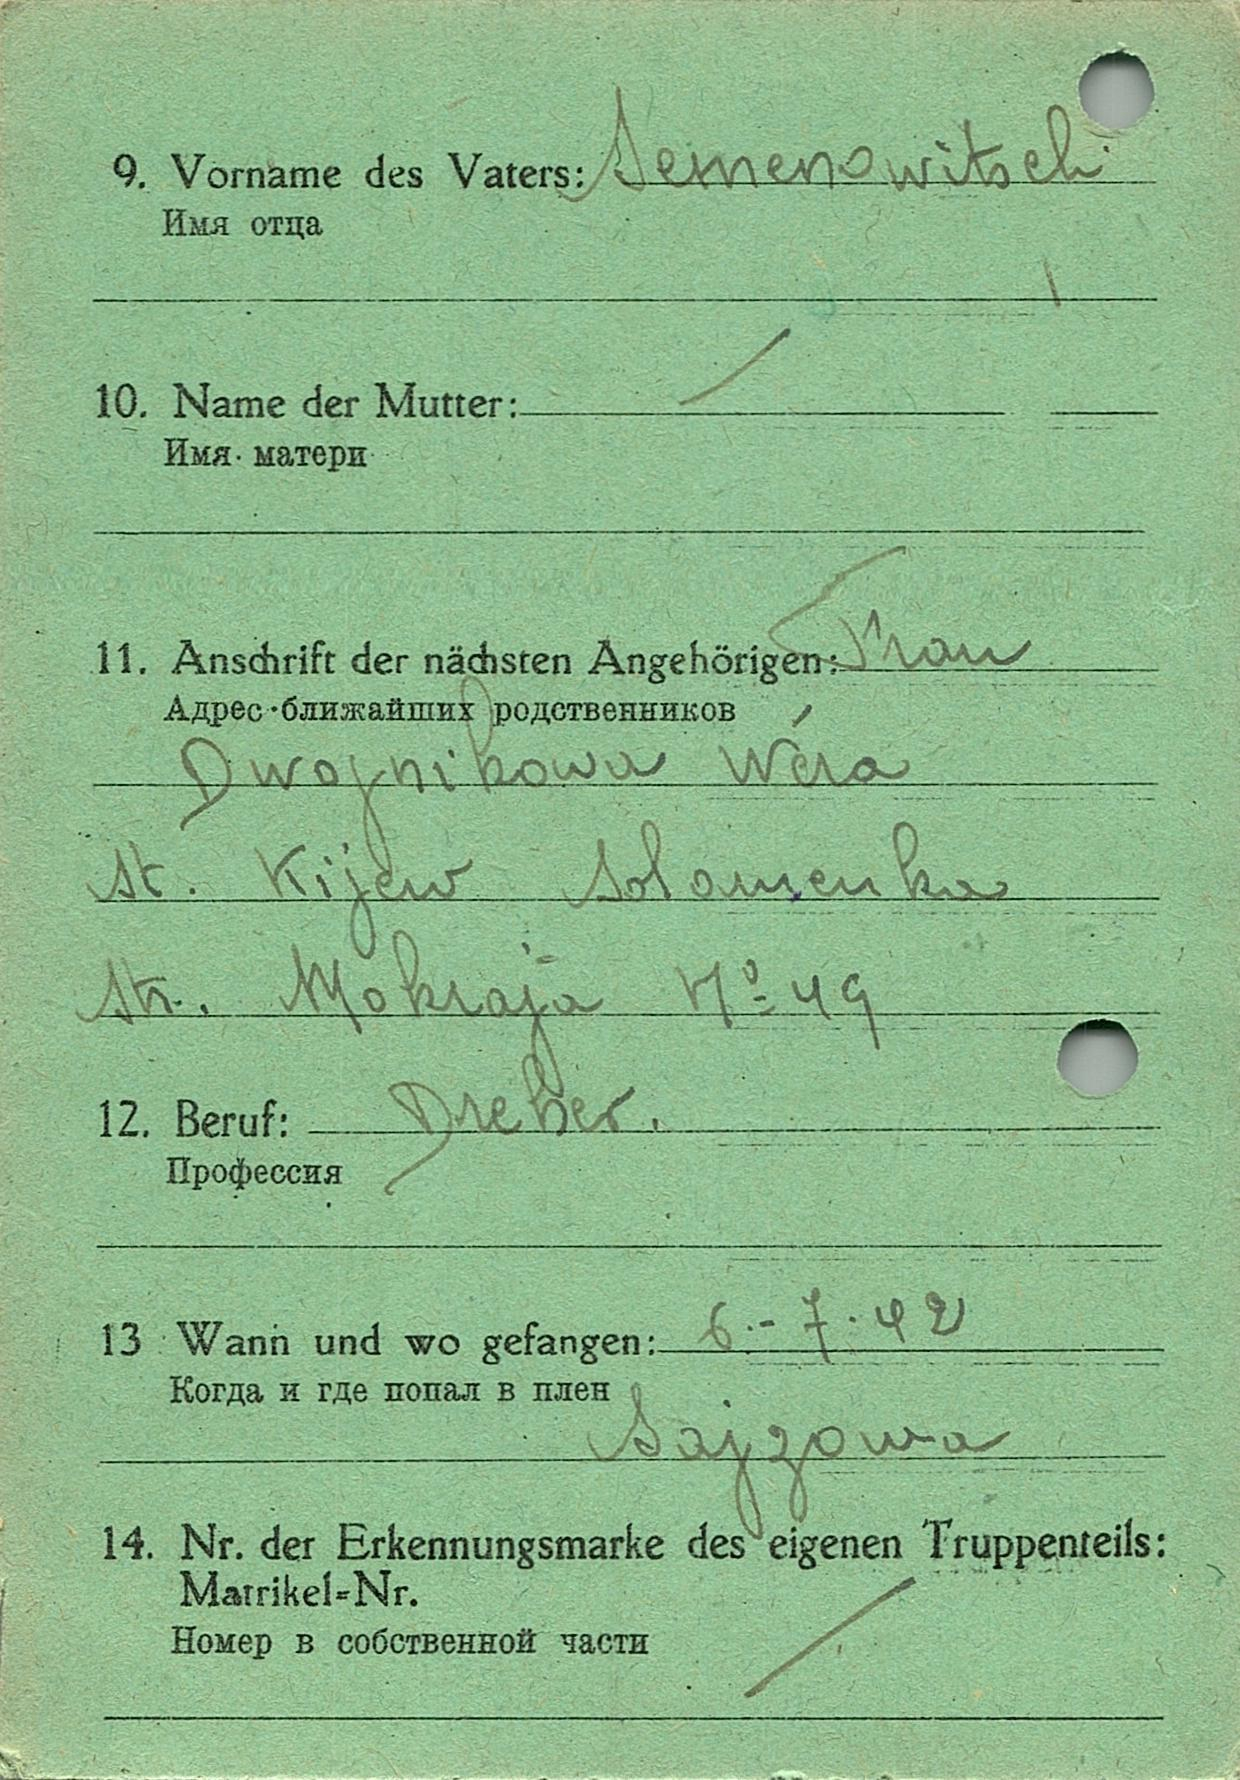 9. Vorname des Vaters: Semenowitsch
Имя отца
10. Name der Mutter:
Имя матери
11. Anschrift der nächsten Angehörigen: Frau
Адрес ближайших родственников
Dwojnikowa Wéra
st. Kijew Solomenka
str. Mokraja No 49
12. Beruf: Dreher.
Профессия
13 Wann und wo gefangen: 6.-7.42
Когда и где попал в плен
Sajzowa
14. Nr. der Erkennungsmarke des eigenen Truppenteils:
Matrikel=Nr.
Номер в собственной части